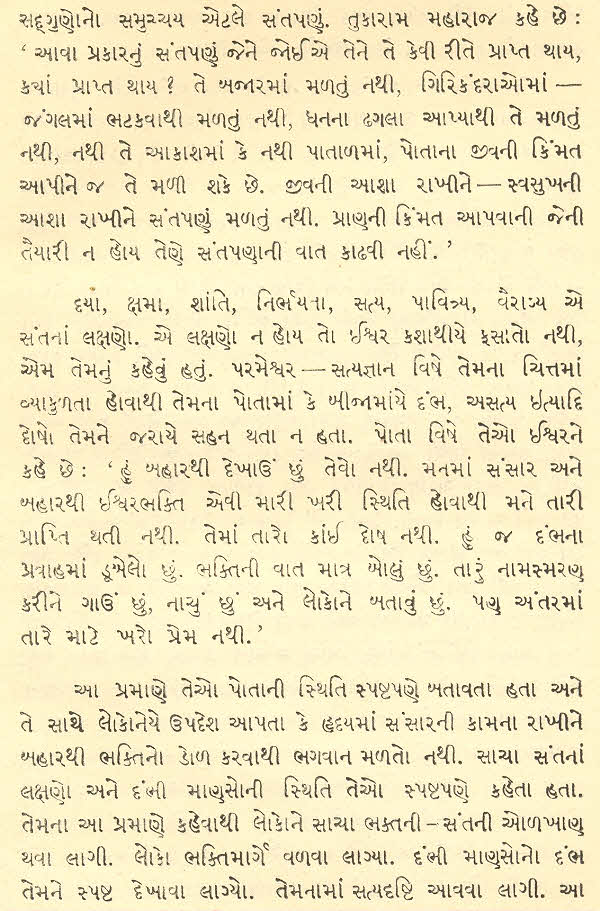 સદ્ગુણોનો સમુચ્ચય એટલે સંતપણું. તુકારામ મહારાજ કહે છે :
‘ આવા પ્રકારનું સંતપણું જેને જોઈએ તેને તે કેવી રીતે પ્રાપ્ત થાય,
ક્યાં પ્રાપ્ત થાય ? તે બજારમાં મળતું નથી, ગિરિકંદરાઓમાં —
જંગલમાં ભટકવાથી મળતું નથી, ધનના ઢગલા આપ્યાથી તે મળતું
નથી, નથી તે આકાશમાં કે નથી પાતાળમાં, પોતાના જીવની કિંમત
આપીને જ તે મળી શકે છે. જીવની આશા રાખીને — સ્વસુખની
આશા રાખીને સંતપણું મળતું નથી. પ્રાણની કિંમત આપવાની જેની
તૈયારી ન હોય તેણે સંતપણાની વાત કાઢવી નહીં. ’
દયા, ક્ષમા, શાંતિ, નિર્ભયતા, સત્ય, પાવિત્ર્ય, વૈરાગ્ય એ
સંતનાં લક્ષણો. એ લક્ષણો ન હોય તો ઈશ્વર કશાથીયે ફસાતો નથી,
એમ તેમનું કહેવું હતું. પરમેશ્વર — સત્યજ્ઞાન વિષે તેમના ચિત્તમાં
વ્યાકુળતા હોવાથી તેમના પોતામાં કે બીજામાંયે દંભ, અસત્ય ઇત્યાદિ
દોષો તેમને જરાયે સહન થતા ન હતા. પોતા વિષે તેઓ ઈશ્વરને
કહે છે : ‘ હું બહારથી દેખાઉં છું તેવો નથી. મનમાં સંસાર અને
બહારથી ઈશ્વરભક્તિ એવી મારી ખરી સ્થિતિ હોવાથી મને તારી
પ્રાપ્તિ થતી નથી. તેમાં તારો કાંઈ દોષ નથી. હું જ દંભના
પ્રવાહમાં ડૂબેલો છું. ભક્તિની વાત માત્ર બોલું છું. તારું નામસ્મરણ
કરીને ગાઉં છું, નાચું છું અને લોકોને બતાવું છું. પણ અંતરમાં
તારે માટે ખરો પ્રેમ નથી. ’
આ પ્રમાણે તેઓ પોતાની સ્થિતિ સ્પષ્ટપણે બતાવતા હતા અને
તે સાથે લોકોનેયે ઉપદેશ આપતા કે હૃદયમાં સંસારની કામના રાખીને
બહારથી ભક્તિનો ડોળ કરવાથી ભગવાન મળતો નથી. સાચા સંતનાં
લક્ષણો અને દંભી માણસોની સ્થિતિ તેઓ સ્પષ્ટપણે કહેતા હતા.
તેમના આ પ્રમાણે કહેવાથી લોકોને સાચા ભક્તની – સંતની ઓળખાણ
થવા લાગી. લોકો ભક્તિમાર્ગે વળવા લાગ્યા. દંભી માણસોનો દંભ
તેમને સ્પષ્ટ દેખાવા લાગ્યો. તેમનામાં સત્યદૃષ્ટિ આવવા લાગી. આ